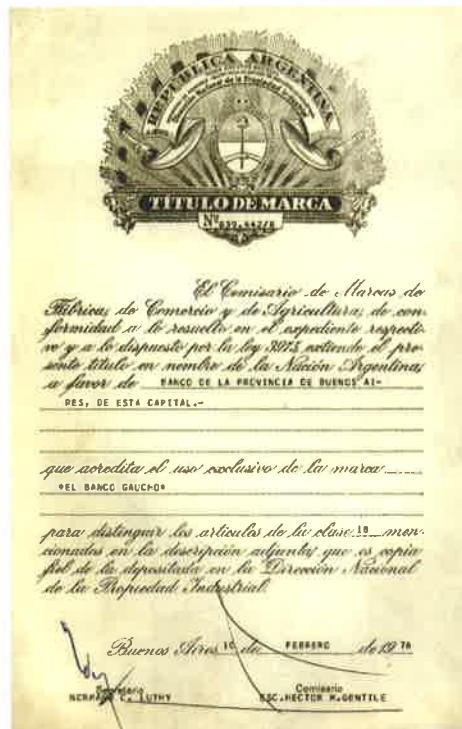 REPUBLICA ARGENTINA
Dirección Nacional de la Propiedad Industrial
TÍTULO DE MARCA
Nº
El Comisario de Marcas de
Fábrica, de Comercio y de Agricultura, de con-
formidad a lo resuelto en el expediente respecti-
vo y a lo dispuesto por la ley 3975 extiende el pre-
sente título en nombre de la Nación Argentina,
a favor de BANCO DE LA PROVINCIA DE BUENOS AI-
RES, DE ESTA CAPITAL.-
que acredita el uso exclusivo de la marca
"EL BANCO GAUCHO"
para distinguir los artículos de la clase 18 men-
cionados en la descripción adjunta, que es copia
fiel de la depositada en la Dirección Nacional
de la Propiedad Industrial.
Buenos Aires, 10 de FEBRERO de 1976
Secretario
Comisario
C. LUTHY
ESC. HECTOR M. GENTILE